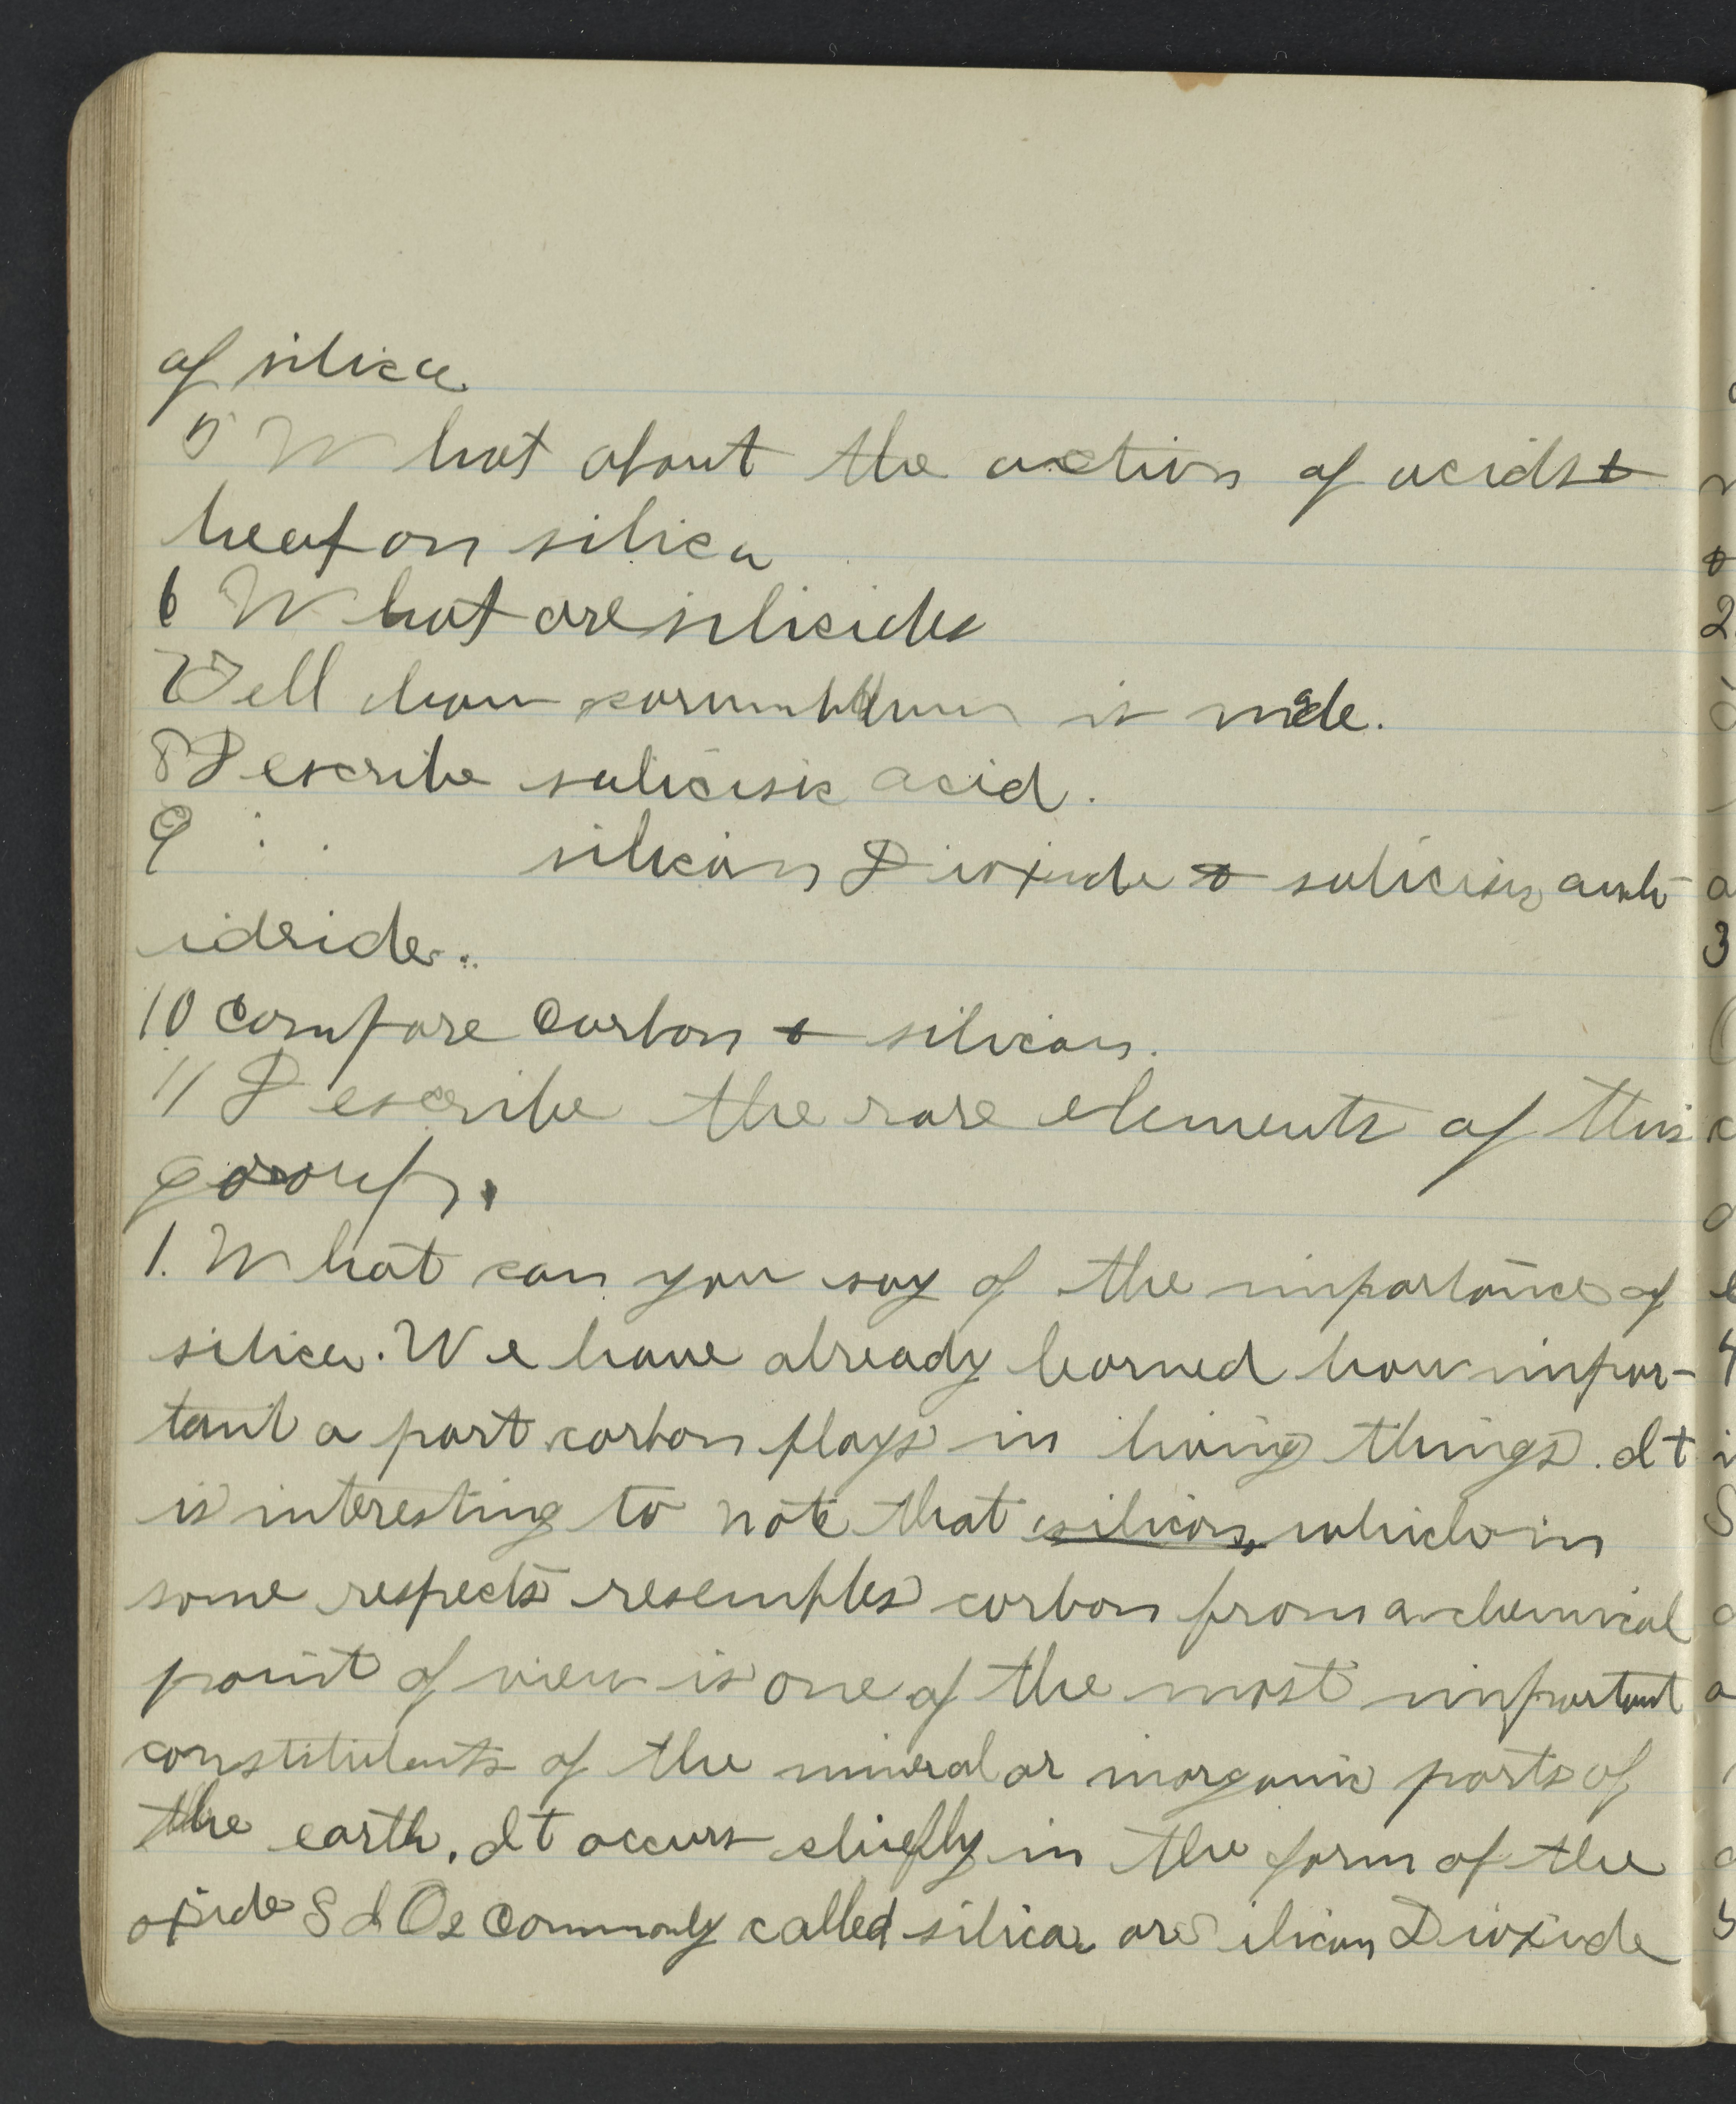 of silica
5 What about the action of acids &
heat on silica
6 What are silicides
7 Tell how corumbdum is made.
8 Describe salicisic acid.
9 " " silicon Dioxide & salicisic anh-
idride.
10 compare Carbon & silicon.
11 Describe the rare elements of this
group.
1. What can you say of the importance of
silica. We have already learned how impor-
tant a part carbon plays in living things. It
is interesting to note that silicon, which in
some respects resembles carbon from a chemical
point of view is one of the most important
constituents of the mineral or inorganic parts of
the earth. It occurs chiefly in the form of the
oxide SIO2 Commonly called silica or Silicon Dioxide